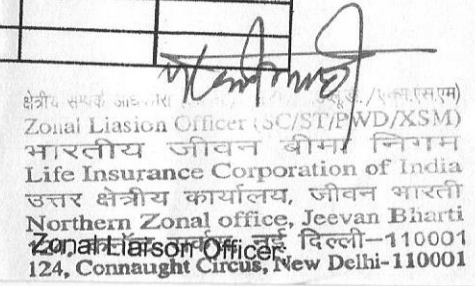 क्षेत्रीय सम्पर्क
Zonal Liasion Officer (SC/ST/PWD/XSM)
भारतीय जीवन बीमा निगम
Life Insurance Corporation of India
उत्तर क्षेत्रीय कार्यालय, जीवन भारती
Northern Zonal office, Jeevan Bharti
Zonal Liaison Officer नई दिल्ली-110001
124, Connaught Circus, New Delhi-110001